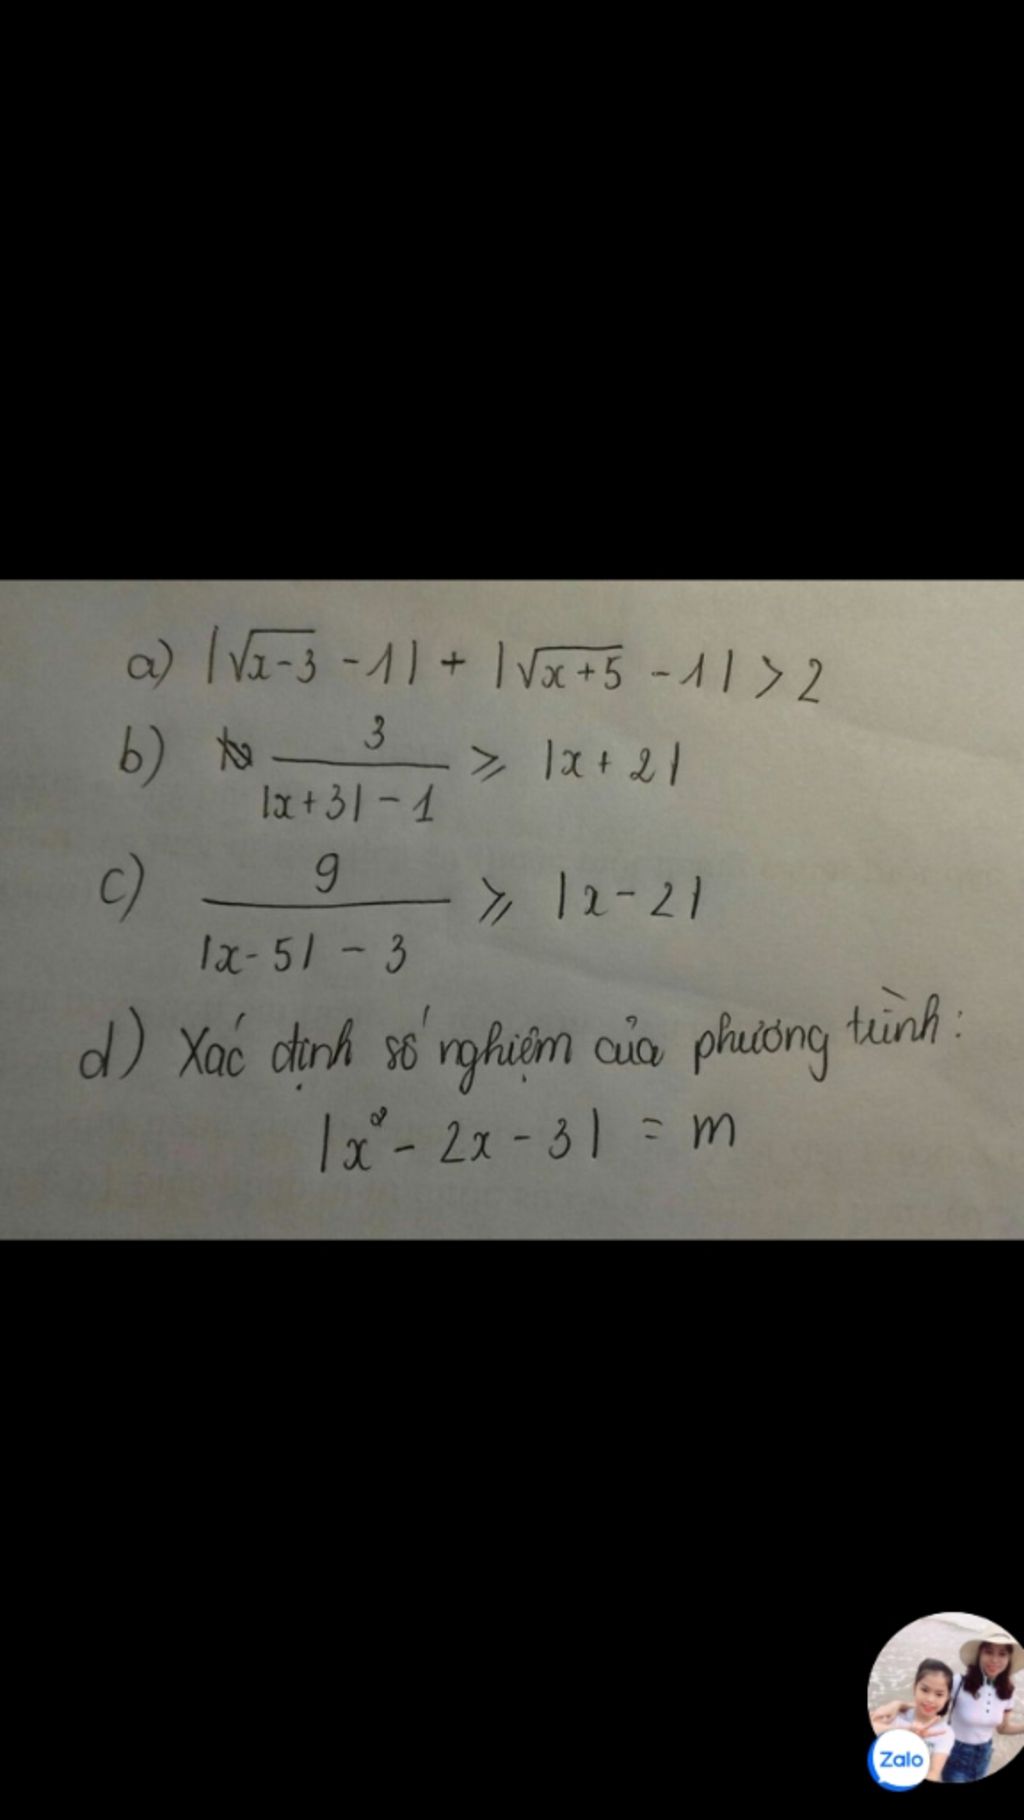 a) |√x-3 - 1| + |√x+5 - 1| > 2
b) 3/(|x+3| - 1) ⩾ |x+2|
c) 9/(|x-5| - 3) ⩾ |x-2|
d) Xác định số nghiệm của phương trình:
|x² - 2x - 3| = m
Zalo